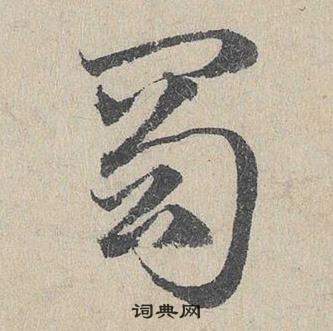 蜀
词典网